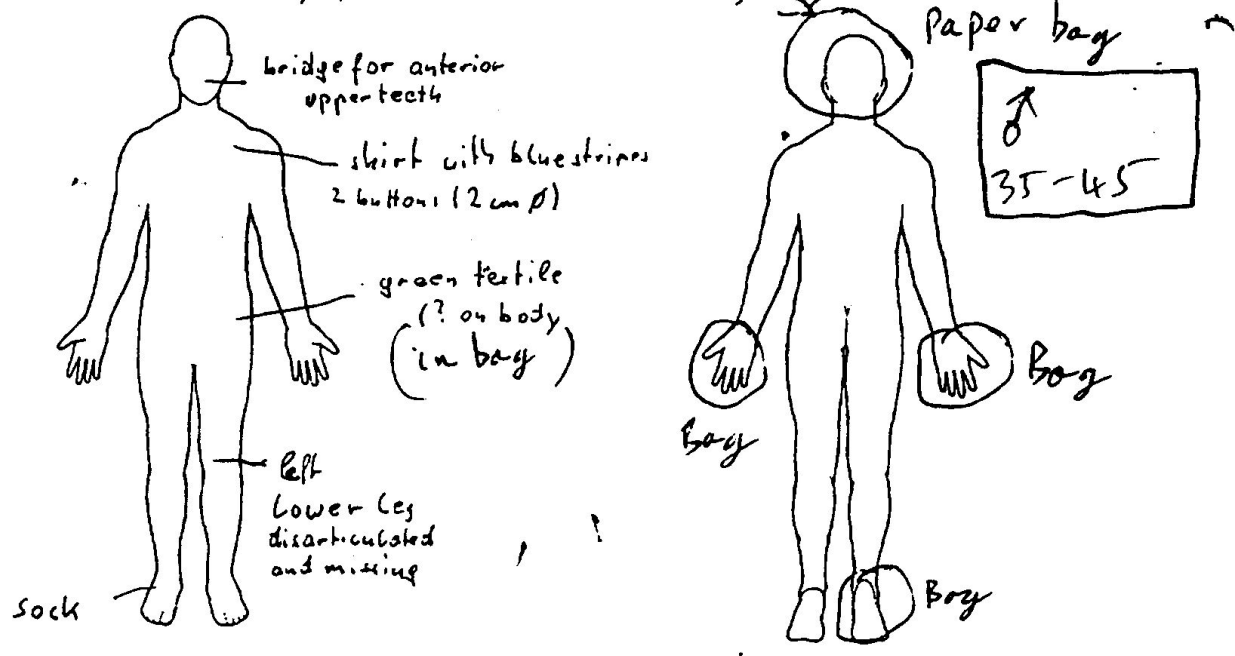 bridge for anterior
upper teeth
shirt with blue stripes
2 buttons (2 cm Ø)
green textile
(? on body
(in bag)
left
Lower leg
disarticulated
and missing
sock
Paper bag
♂
35-45
Bag
Bag
Bag